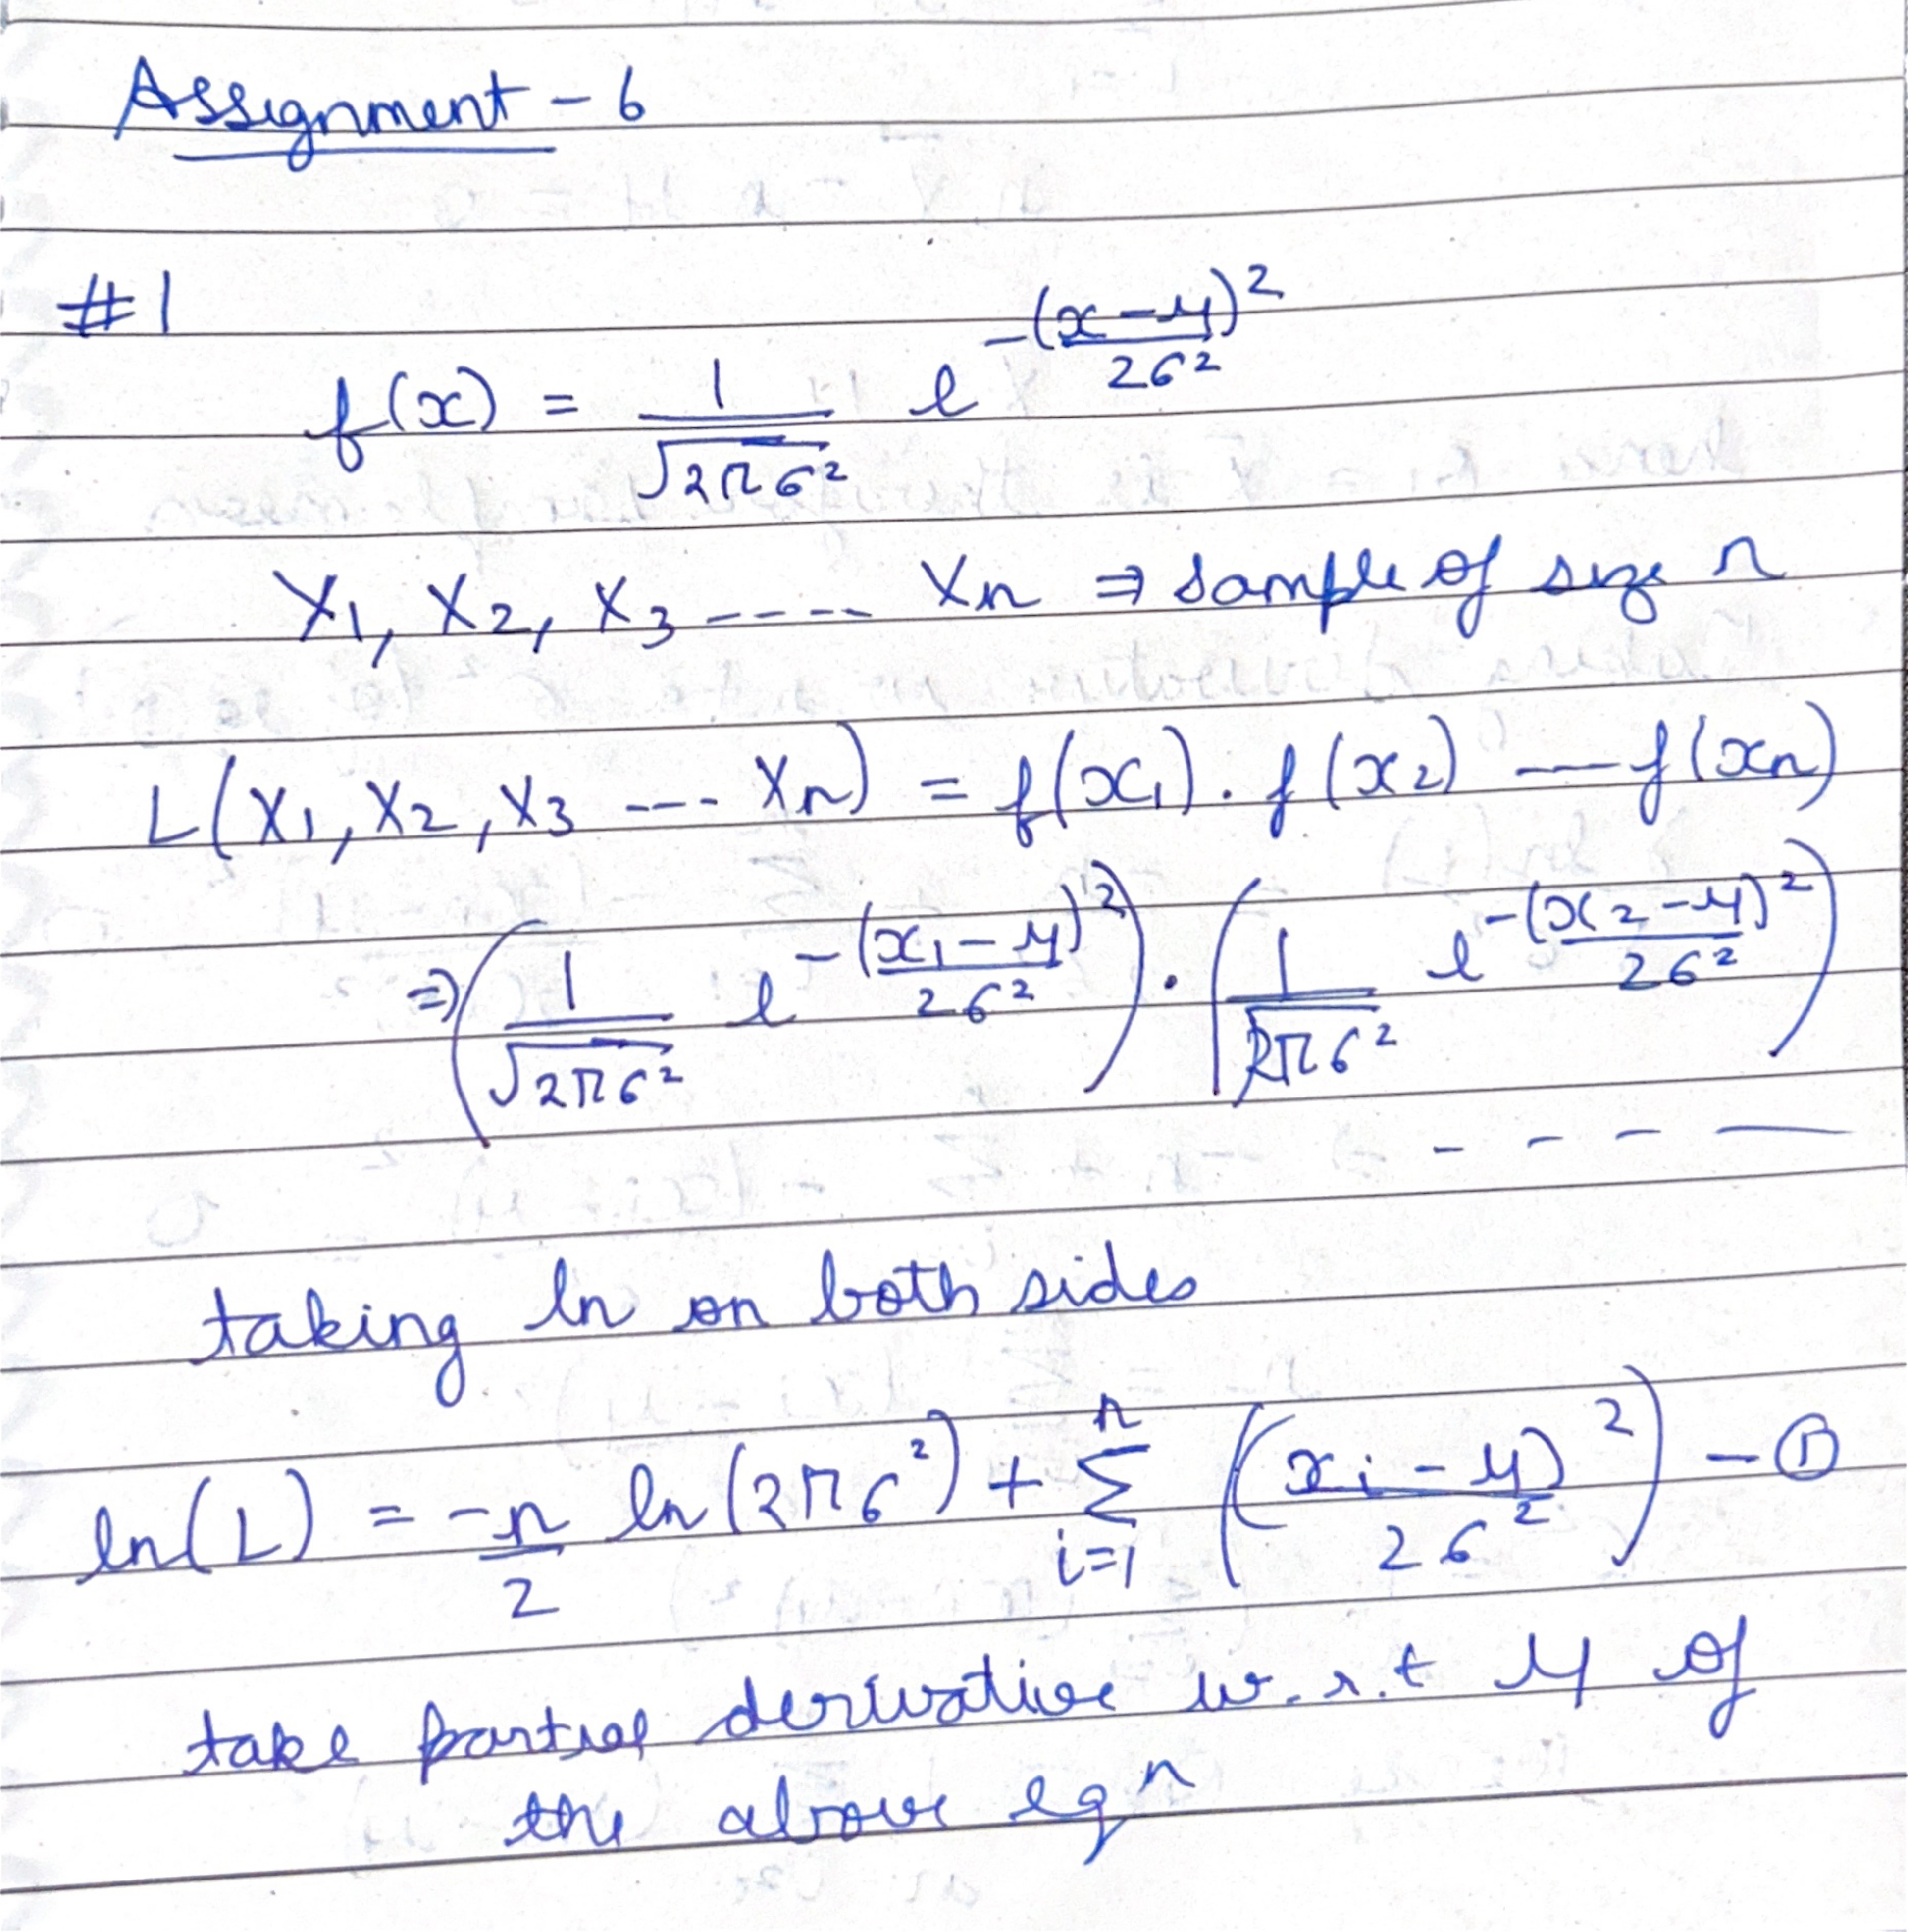 Assignment - 6
#1
f(x) = 1/√(2πσ²) e^(-(x-μ)²/2σ²)
X1, X2, X3 ---- Xn ⇒ sample of size n
L(X1, X2, X3 --- Xn) = f(x1) . f(x2) — f(xn)
⇒ (1/√(2πσ²) e^(-(x1-μ)²/2σ²)) . (1/√(2πσ²) e^(-(x2-μ)²/2σ²))
- - - —
taking ln on both sides
ln(L) = -n/2 ln(2πσ²) + Σ_{i=1}^{n} ((xi-μ)²/2σ²) - ①
take partial derivative w.r.t μ of
the above eqⁿ